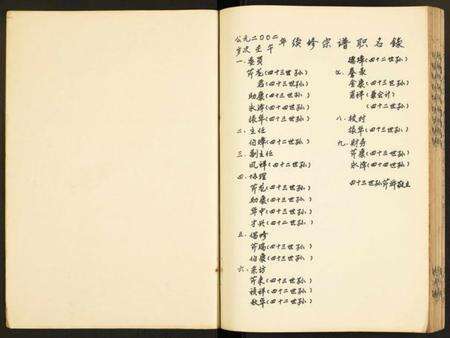 公元二〇〇二年
岁次壬午
续修宗谱职名录
一·委员
节花(四十三世孙)
君(四十三世孙)
助康(四十三世孙)
水涛(四十四世孙)
振华(四十三世孙)
二·主任
伯嶂(四十二世孙)
三·副主任
凤祥(四十二世孙)
四·协理
节花(四十三世孙)
助康(四十三世孙)
华中(四十三世孙)
才兴(四十二世孙)
五·编修
节瑞(四十三世孙)
伯康(四十三世孙)
六·采访
节来(四十三世孙)
祯祥(四十二世孙)
敖华(四十二世孙)
瑞璋(四十二世孙)
七·誊录
金康(四十三世孙)
(兼会计)
(四十二世孙)
八·校对
振华(四十三世孙)
九·财务
节康(四十三世孙)
水涛(四十四世孙)
四十三世孙节新敬立